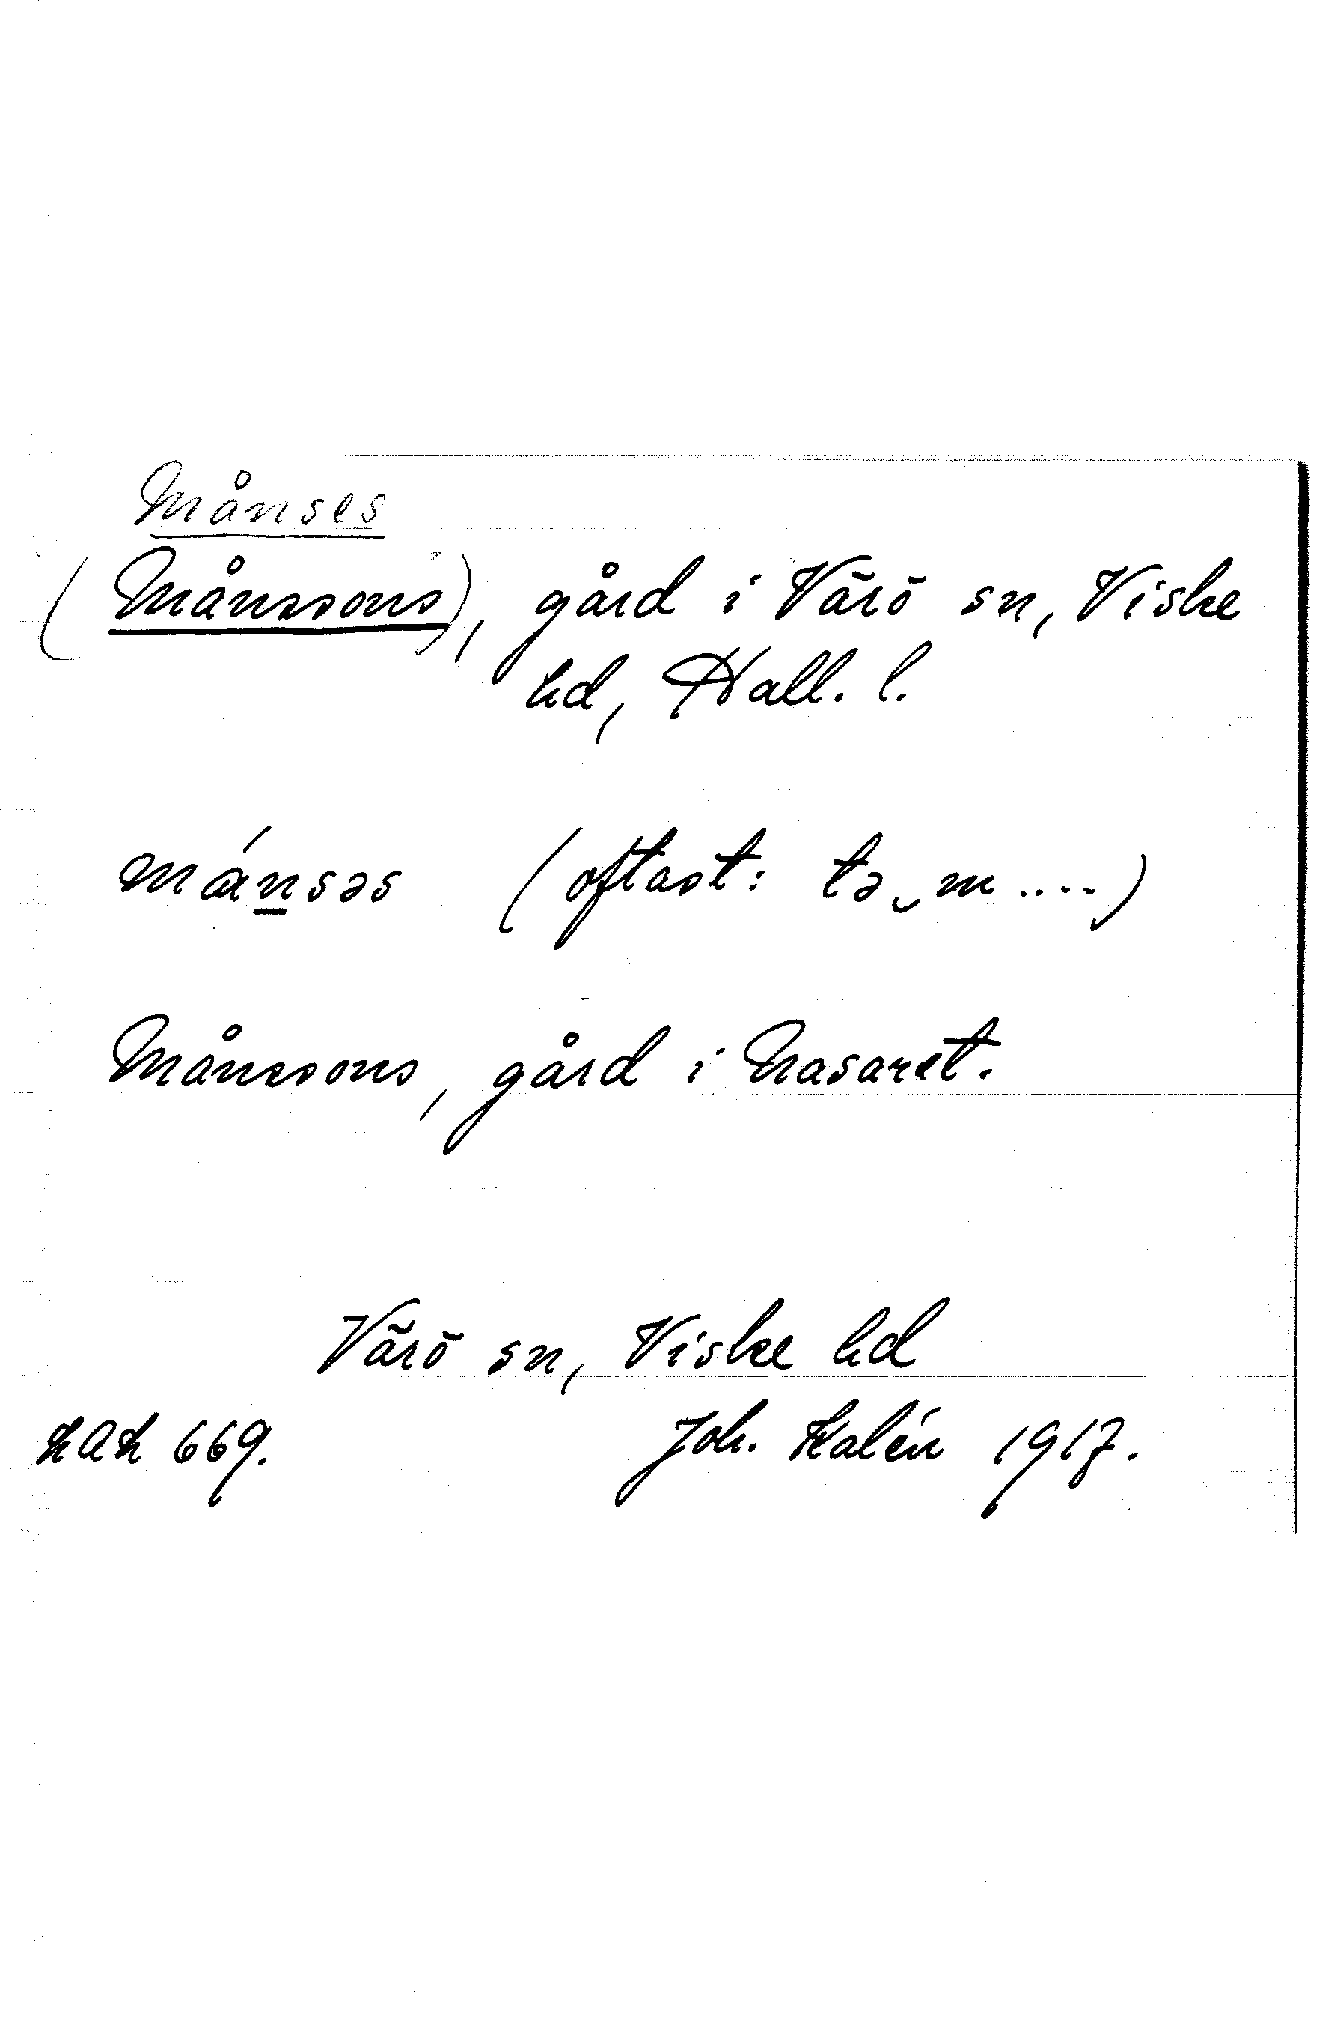 Månses
(Månssons), gård i Värö sn, Viske
hd, Hall. l.
mánsəs (oftast: tə‿m ....)
Månssons, gård i Nasaret.
Värö sn, Viske hd
LAL 669. Joh. Kalén 1917.